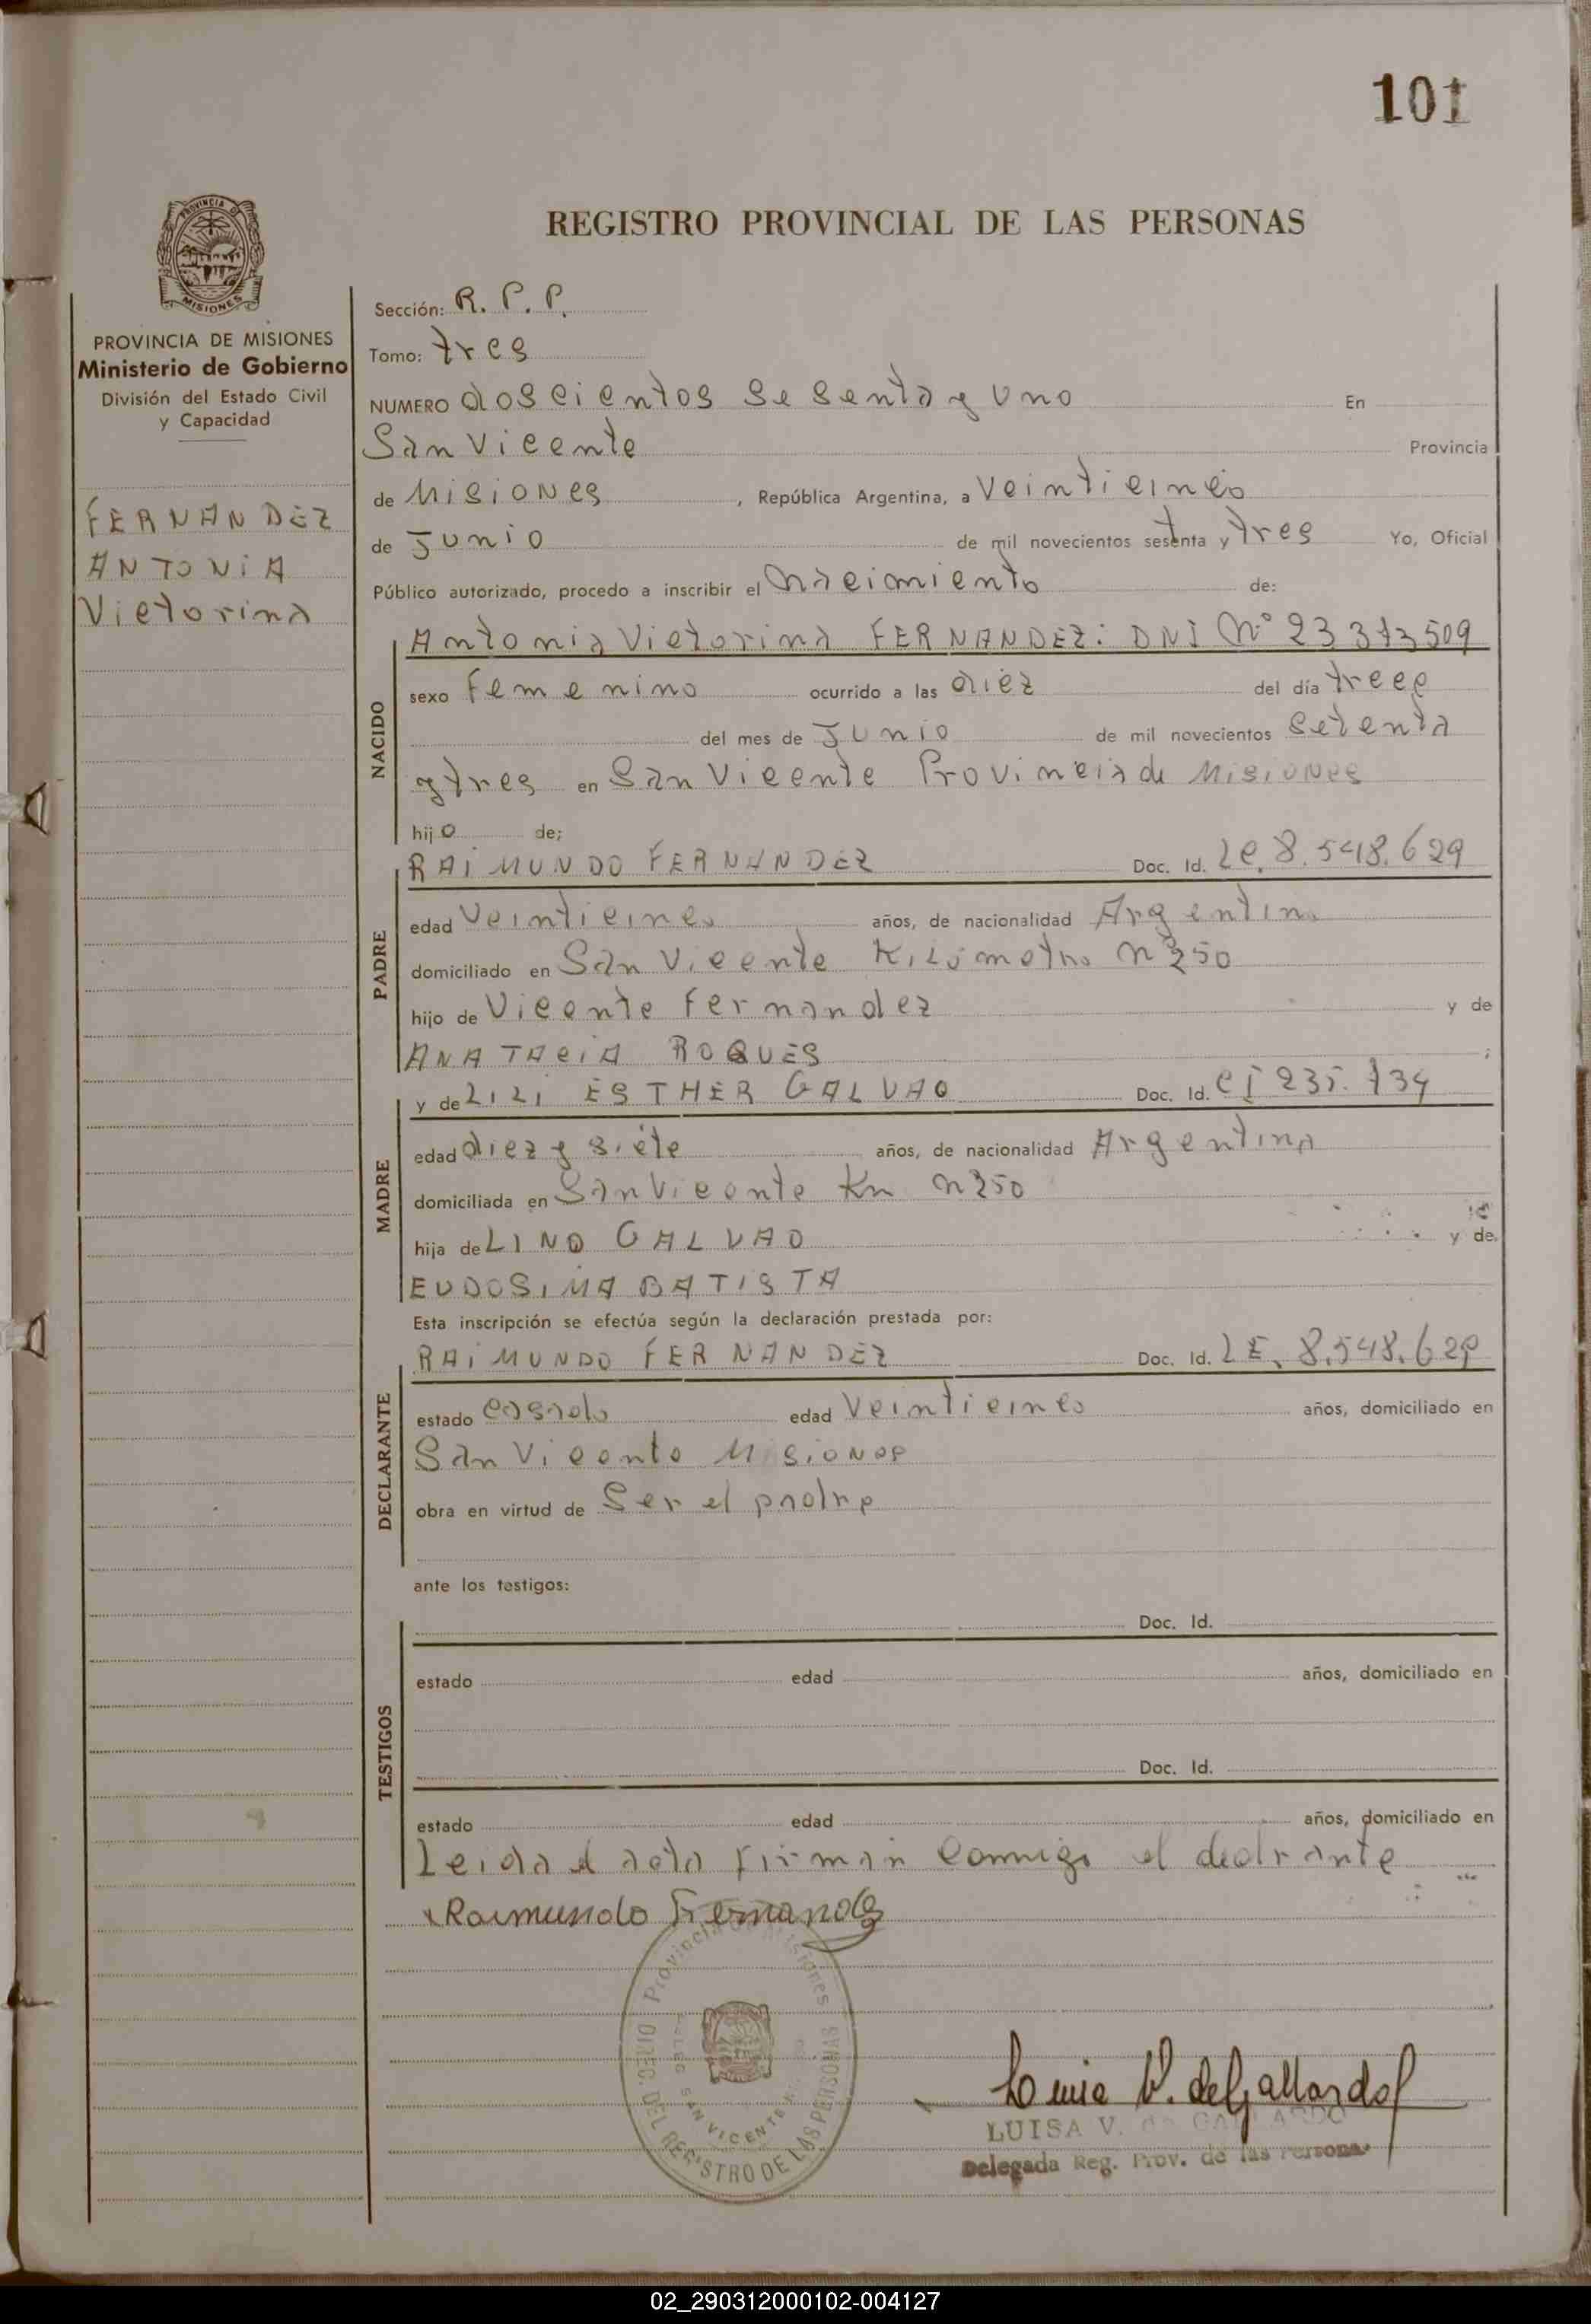 101
REGISTRO PROVINCIAL DE LAS PERSONAS
PROVINCIA DE MISIONES
PROVINCIA DE MISIONES
Ministerio de Gobierno
División del Estado Civil
y Capacidad
FERNANDEZ
ANTONIA
Victorina
Sección: R. P. P.
Tomo: tres
NUMERO doscientos sesenta y uno En
San Vicente Provincia
de Misiones, República Argentina, a Veinticinco
de Junio de mil novecientos sesenta y tres Yo, Oficial
Público autorizado, procedo a inscribir el nacimiento de:
NACIDO
Antonia Victorina FERNANDEZ: DNI Nº 23 373509
sexo Femenino ocurrido a las diez del día trece
del mes de Junio de mil novecientos setenta
y tres en San Vicente Provincia de Misiones
hijo de;
PADRE
RAIMUNDO FERNANDEZ Doc. Id. Le. 8.548.629
edad Veinticinco años, de nacionalidad Argentino
domiciliado en San Vicente Kilómetro nº 250
hijo de Vicente Fernandez y de
ANATACIA ROQUES;
MADRE
y de LILI ESTHER GALVAO Doc. Id. CI 235.734
edad diez y siete años, de nacionalidad Argentina
domiciliada en San Vicente Km nº 250
hija de LINO GALVAO y de
EUDOSIMA BATISTA
Esta inscripción se efectúa según la declaración prestada por:
DECLARANTE
RAIMUNDO FERNANDEZ Doc. Id. LE. 8.548.629
estado casado edad Veinticinco años, domiciliado en
San Vicente Misiones
obra en virtud de Ser el padre
ante los testigos:
TESTIGOS
Doc. Id.
estado edad años, domiciliado en
Doc. Id.
estado edad años, domiciliado en
Leida el acta firman conmigo el declrante
x Raimundo Fernandez
Provincia de Misiones
DIREC. DEL REGISTRO DE LAS PERSONAS
SAN VICENTE
Luisa V. de Gallardo
LUISA V. de GALLARDO
Delegada Reg. Prov. de las Personas
02_290312000102-004127